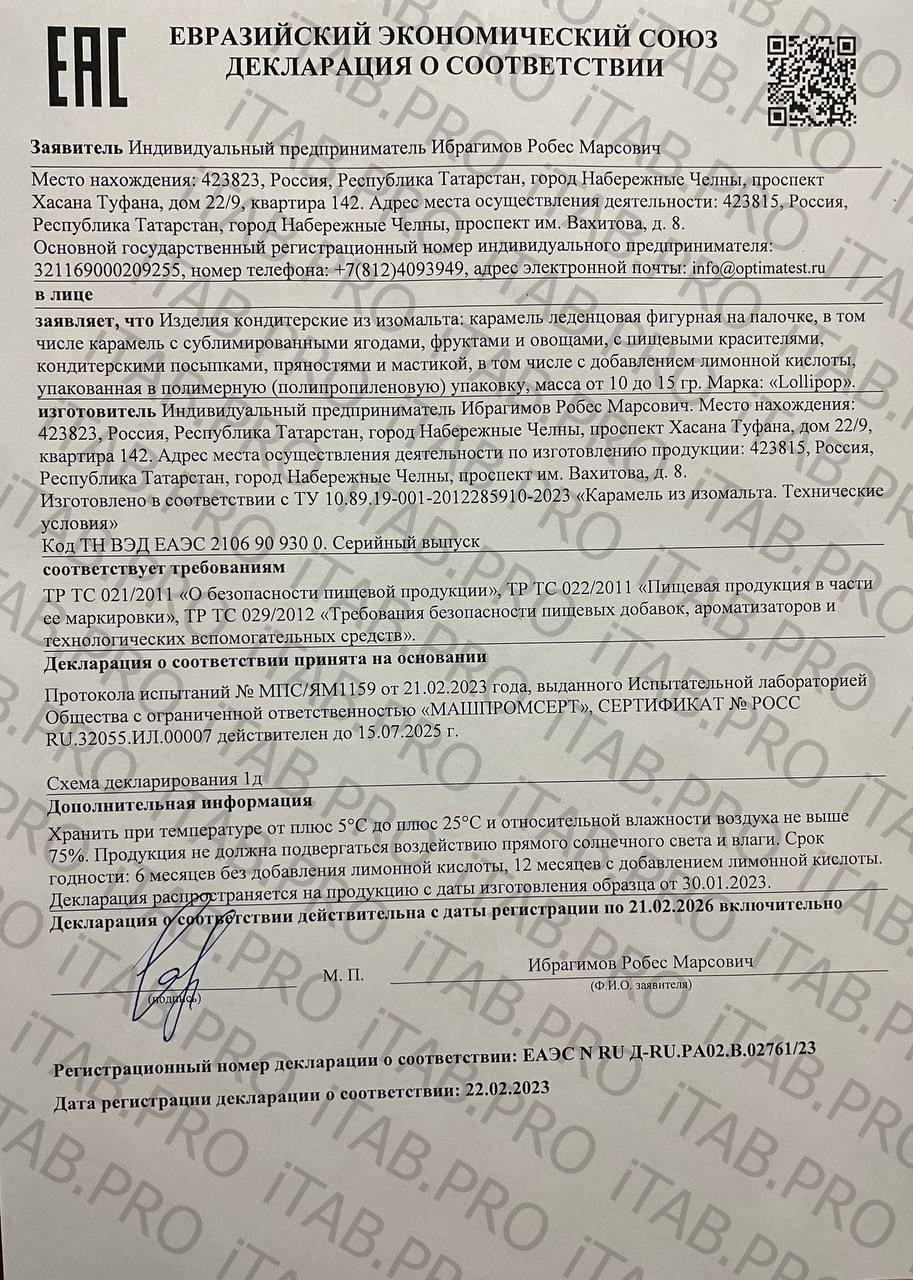 EAC
ЕВРАЗИЙСКИЙ ЭКОНОМИЧЕСКИЙ СОЮЗ
ДЕКЛАРАЦИЯ О СООТВЕТСТВИИ
Заявитель Индивидуальный предприниматель Ибрагимов Робес Марсович
Место нахождения: 423823, Россия, Республика Татарстан, город Набережные Челны, проспект
Хасана Туфана, дом 22/9, квартира 142. Адрес места осуществления деятельности: 423815, Россия,
Республика Татарстан, город Набережные Челны, проспект им. Вахитова, д. 8.
Основной государственный регистрационный номер индивидуального предпринимателя:
321169000209255, номер телефона: +7(812)4093949, адрес электронной почты: info@optimatest.ru
в лице
заявляет, что Изделия кондитерские из изомальта: карамель леденцовая фигурная на палочке, в том
числе карамель с сублимированными ягодами, фруктами и овощами, с пищевыми красителями,
кондитерскими посыпками, пряностями и мастикой, в том числе с добавлением лимонной кислоты,
упакованная в полимерную (полипропиленовую) упаковку, масса от 10 до 15 гр. Марка: «Lollipop».
изготовитель Индивидуальный предприниматель Ибрагимов Робес Марсович. Место нахождения:
423823, Россия, Республика Татарстан, город Набережные Челны, проспект Хасана Туфана, дом 22/9,
квартира 142. Адрес места осуществления деятельности по изготовлению продукции: 423815, Россия,
Республика Татарстан, город Набережные Челны, проспект им. Вахитова, д. 8.
Изготовлено в соответствии с ТУ 10.89.19-001-2012285910-2023 «Карамель из изомальта. Технические
условия»
Код ТН ВЭД ЕАЭС 2106 90 930 0. Серийный выпуск
соответствует требованиям
ТР ТС 021/2011 «О безопасности пищевой продукции», ТР ТС 022/2011 «Пищевая продукция в части
ее маркировки», ТР ТС 029/2012 «Требования безопасности пищевых добавок, ароматизаторов и
технологических вспомогательных средств».
Декларация о соответствии принята на основании
Протокола испытаний № МПС/ЯМ1159 от 21.02.2023 года, выданного Испытательной лабораторией
Общества с ограниченной ответственностью «МАШПРОМСЕРТ», СЕРТИФИКАТ № РОСС
RU.32055.ИЛ.00007 действителен до 15.07.2025 г.
Схема декларирования 1д
Дополнительная информация
Хранить при температуре от плюс 5°С до плюс 25°С и относительной влажности воздуха не выше
75%. Продукция не должна подвергаться воздействию прямого солнечного света и влаги. Срок
годности: 6 месяцев без добавления лимонной кислоты, 12 месяцев с добавлением лимонной кислоты.
Декларация распространяется на продукцию с даты изготовления образца от 30.01.2023.
Декларация о соответствии действительна с даты регистрации по 21.02.2026 включительно
М. П.
Ибрагимов Робес Марсович
(подпись)
(Ф.И.О. заявителя)
Регистрационный номер декларации о соответствии: ЕАЭС N RU Д-RU.РА02.В.02761/23
Дата регистрации декларации о соответствии: 22.02.2023
iTAB.PRO